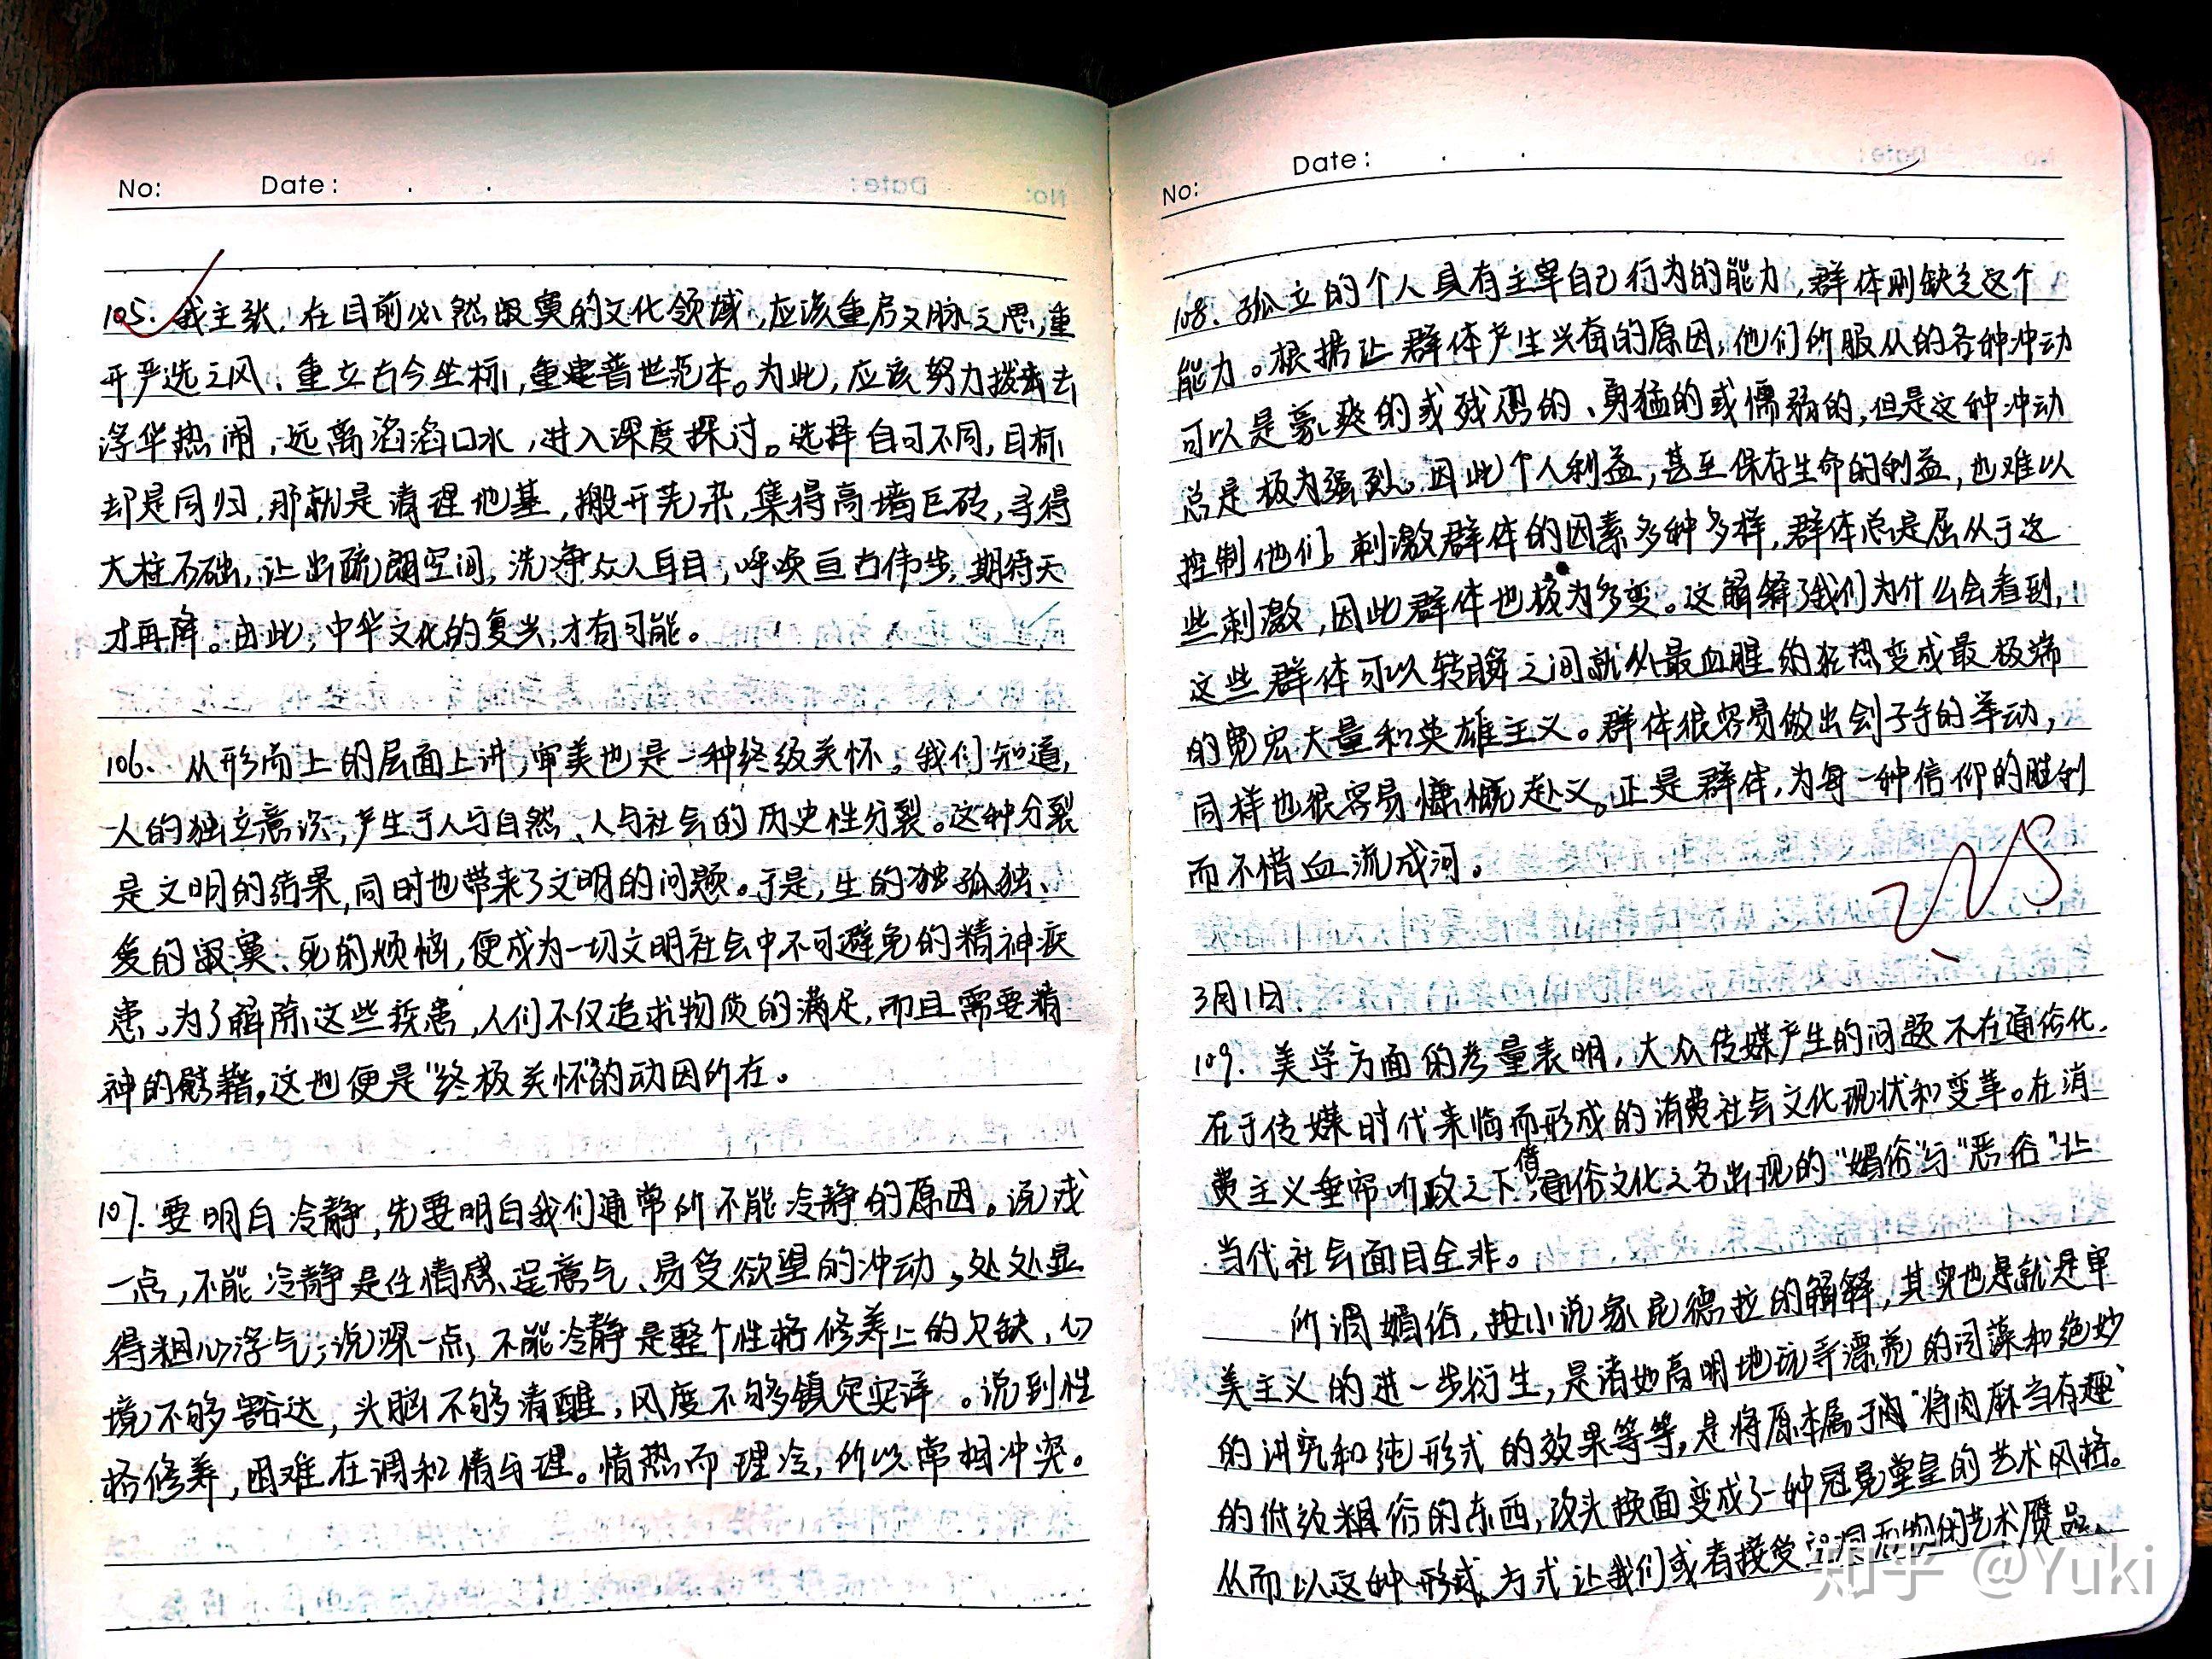 No:
Date:
105. 我主张,在目前必然寂寞的文化领域,应该重启文脉之思,重
开严选之风、重立古今坐标,重建普世范本。为此,应该努力拨去
浮华热闹,远离滔滔口水,进入深度探讨。选择自可不同,目标
却是同归,那就是清理地基,搬开芜杂,集得高墙巨砖,寻得
大柱石础,让出疏朗空间,洗净众人耳目,呼唤亘古伟步,期待天
才再降。由此,中华文化的复兴,才有可能。
106. 从形而上的层面上讲,审美也是一种终级关怀。我们知道,
人的独立意识,产生于人与自然、人与社会的历史性分裂。这种分裂
是文明的结果,同时也带来了文明的问题。于是,生的独孤独、
爱的寂寞、死的烦恼,便成为一切文明社会中不可避免的精神疾
患。为了解除这些疾患,人们不仅追求物质的满足,而且需要精
神的慰藉,这也便是“终极关怀”的动因所在。
107. 要明白冷静,先要明白我们通常所不能冷静的原因。说浅
一点,不能冷静是任情感、逞意气、易受欲望的冲动,处处显
得粗心浮气;说深一点,不能冷静是整个性格修养上的欠缺,心
境不够豁达,头脑不够清醒,风度不够镇定安详。说到性
格修养,困难在调和情与理。情热而理冷,所以常相冲突。
No:
Date:
108. 孤立的个人具有主宰自己行为的能力,群体则缺乏这个
能力。根据让群体产生兴奋的原因,他们所服从的各种冲动
可以是豪爽的或残忍的、勇猛的或懦弱的,但是这种冲动
总是极为强烈。因此个人利益,甚至保存生命的利益,也难以
控制他们。刺激群体的因素多种多样,群体总是屈从于这
些刺激,因此群体也极为多变。这解释了我们为什么会看到,
这些群体可以转瞬之间就从最血腥的狂热变成最极端
的宽宏大量和英雄主义。群体很容易做出刽子手的举动,
同样也很容易慷慨赴义。正是群体,为每一种信仰的胜利
而不惜血流成河。
3月1日.
109. 美学方面的考量表明,大众传媒产生的问题不在通俗化,
在于传媒时代来临而形成的消费社会文化现状和变革。在消
费主义垂帘听政之下,借通俗文化之名出现的“媚俗”与“恶俗”让
当代社会面目全非。
所谓媚俗,按小说家昆德拉的解释,其实也是就是审
美主义的进一步衍生,是诸如高明地玩弄漂亮的词藻和绝妙
的讲究和纯形式的效果等等,是将原本属于肉“将肉麻当有趣”
的低级粗俗的东西,改头换面变成了一种冠冕堂皇的艺术风格。
从而以这种形式、方式让我们或者接受空洞无物的艺术赝品、
知乎 @Yuki